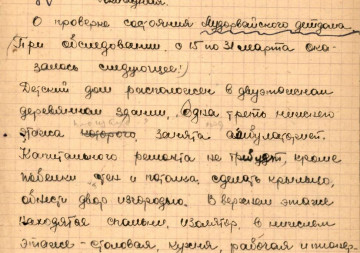 О проверке состояния Лудорвайского детдома.
(При обследовании с 15 по 31 марта ока-
залось следующее:)
Детский дом расположен в двухэтажном
деревянном здании. Одна треть нижнего
этажа которого занята амбулаторией.
Капитального ремонта не требует, кроме
побелки стен и потолка, сделать крыльцо,
обнести двор изгородью. В верхнем этаже
находятся спальни, изолятор, в нижнем
этаже - столовая, кухня, рабочая и пионер-